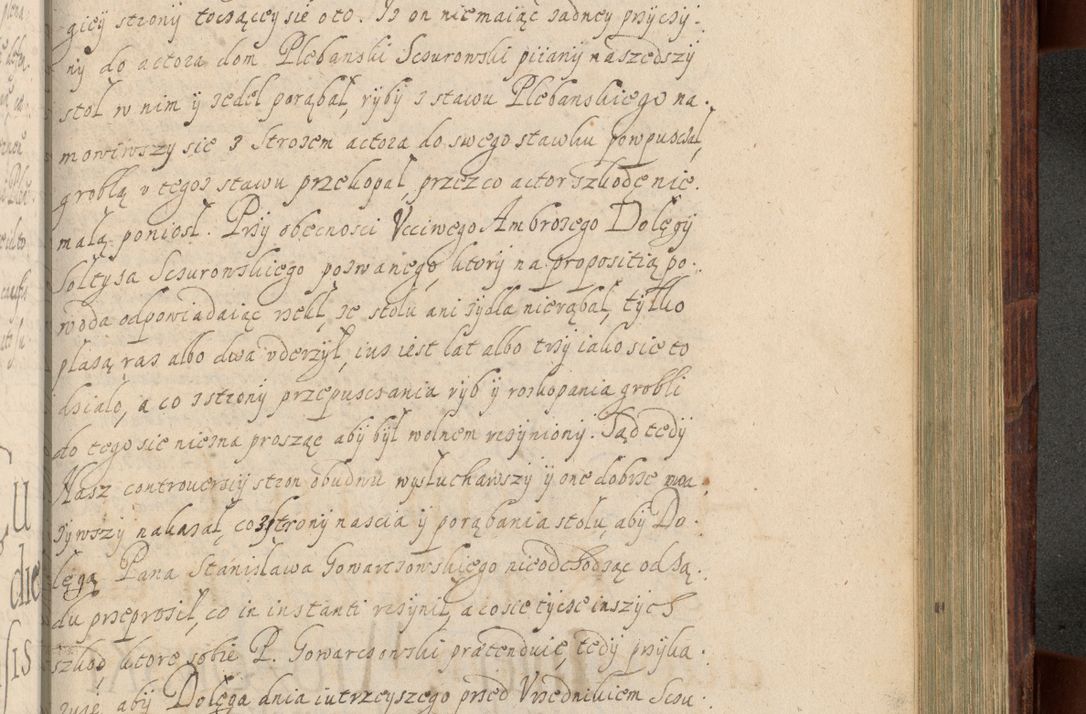 giey strony toczączey się oto. Iz on niemaiąc zadney przyczy:
ny do actora dom Plebanski Sczurowski piiany naszedszy
stol w nim y zedel porąbał, ryby z stawu Plebanskiego na:
mowiwszy się z Strozem actora do swego stawku powpusczał,
groblą v tegoz stawu przekopał, przez co actor szkodę nie:
małą poniosł. Przy obecnosci Vcciwego Ambrozego Dolęgy
soltysa Sczurowskiego pozwanego, ktory na propositią po:
woda odpowiadaiąc rzekł, ze stolu ani zydla nierąbał, tylko
plazą raz albo dwa vderzył, iuz iest lat albo trzy iako się to
działo, a co z strony przepusczania ryb y rozkopania grobli
do tego się niezna prosząc aby był wolnem vczyniony. Sąd tedy
Nasz controuersiy stron obudwu wysłuchawszy y one dobrze uwa:
zywszy nakazał, co z strony nascia y porąbania stolu, aby Do:
lęga Pana Stanisława Gowarczowskiego nieodchodząc od Są:
du przeprosił, co in instanti vczynił, a co sie tycze inszych
szkod ktore sobie P. Gowarczowski praetenduie, tedy przyka:
zuie, aby Dolęga dnia iutrzeyszego przed Vrzednikiem Sczu:
Cu
die
sis